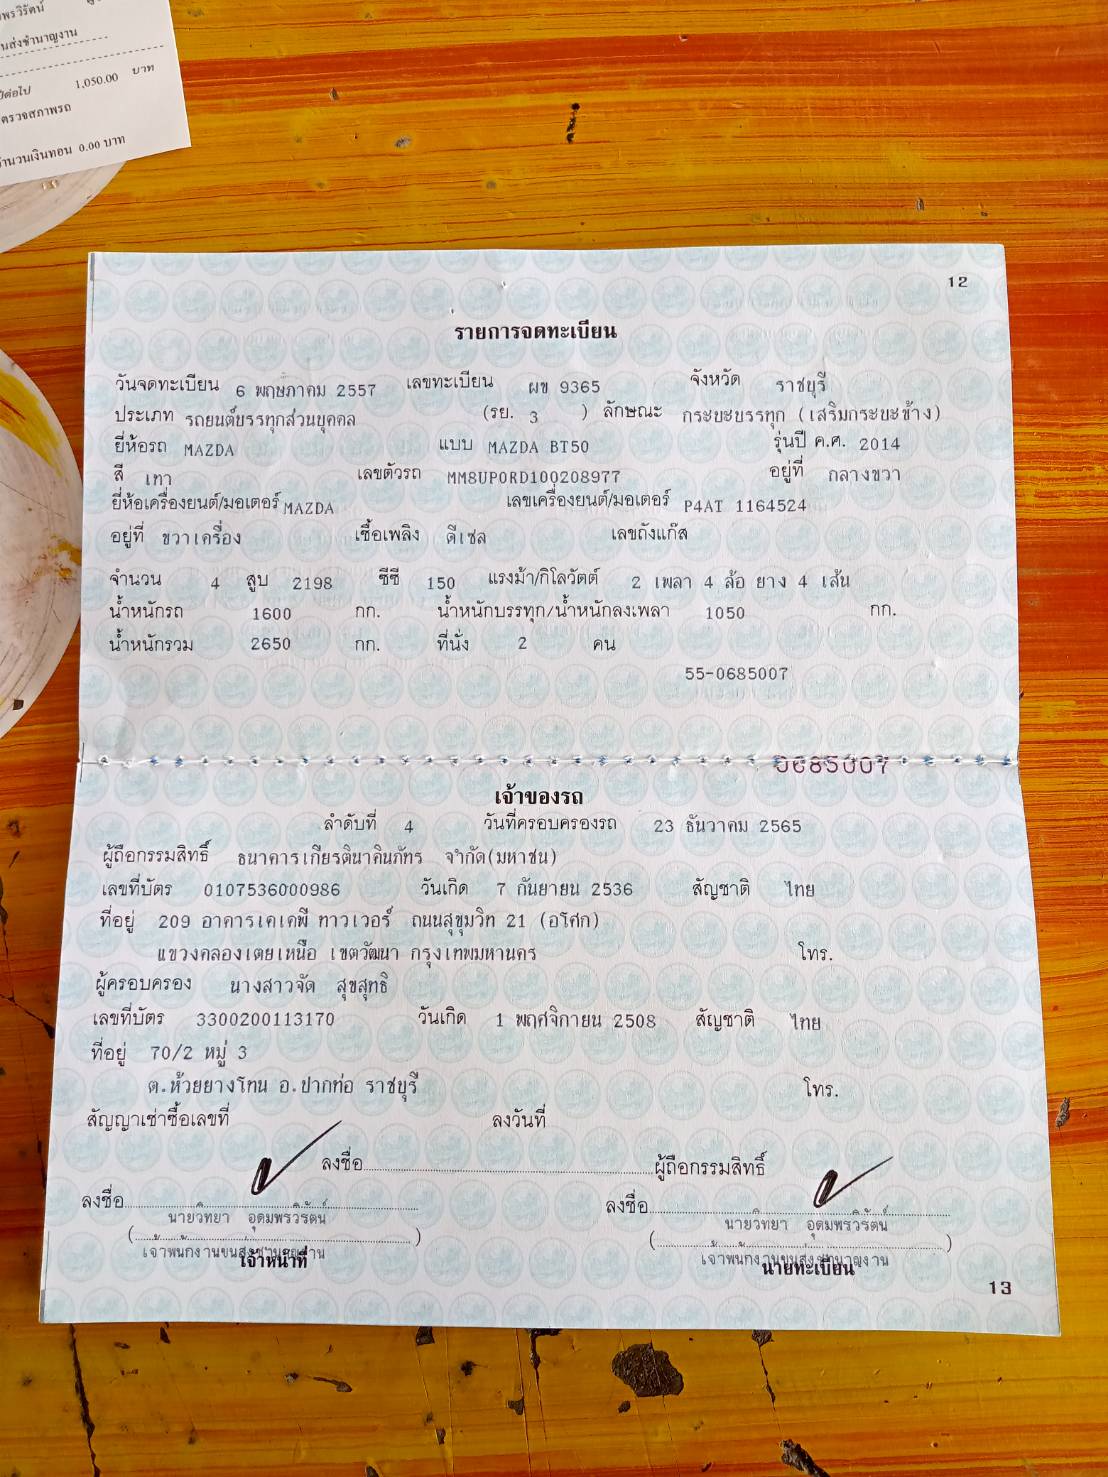 พรวิรัตน์
นส่งชำนาญงาน
ปีต่อไป 1,050.00 บาท
ตรวจสภาพรถ
จำนวนเงินทอน 0.00 บาท
12
รายการจดทะเบียน
วันจดทะเบียน 6 พฤษภาคม 2557 เลขทะเบียน ผข 9365 จังหวัด ราชบุรี
ประเภท รถยนต์บรรทุกส่วนบุคคล (รย. 3 ) ลักษณะ กระบะบรรทุก (เสริมกระบะข้าง)
ยี่ห้อรถ MAZDA แบบ MAZDA BT50 รุ่นปี ค.ศ. 2014
สี เทา เลขตัวรถ MM8UP0RD100208977 อยู่ที่ กลางขวา
ยี่ห้อเครื่องยนต์/มอเตอร์ MAZDA เลขเครื่องยนต์/มอเตอร์ P4AT 1164524
อยู่ที่ ขวาเครื่อง เชื้อเพลิง ดีเซล เลขถังแก๊ส
จำนวน 4 สูบ 2198 ซีซี 150 แรงม้า/กิโลวัตต์ 2 เพลา 4 ล้อ ยาง 4 เส้น
น้ำหนักรถ 1600 กก. น้ำหนักบรรทุก/น้ำหนักลงเพลา 1050 กก.
น้ำหนักรวม 2650 กก. ที่นั่ง 2 คน
55-0685007
0685007
เจ้าของรถ
ลำดับที่ 4 วันที่ครอบครองรถ 23 ธันวาคม 2565
ผู้ถือกรรมสิทธิ์ ธนาคารเกียรตินาคินภัทร จำกัด(มหาชน)
เลขที่บัตร 0107536000986 วันเกิด 7 กันยายน 2536 สัญชาติ ไทย
ที่อยู่ 209 อาคารเคเคพี ทาวเวอร์ ถนนสุขุมวิท 21 (อโศก)
แขวงคลองเตยเหนือ เขตวัฒนา กรุงเทพมหานคร โทร.
ผู้ครอบครอง นางสาวจัด สุขสุทธิ
เลขที่บัตร 3300200113170 วันเกิด 1 พฤศจิกายน 2508 สัญชาติ ไทย
ที่อยู่ 70/2 หมู่ 3
ต.ห้วยยางโทน อ.ปากท่อ ราชบุรี โทร.
สัญญาเช่าซื้อเลขที่ ลงวันที่
ลงชื่อ ผู้ถือกรรมสิทธิ์
ลงชื่อ ลงชื่อ
นายวิทยา อุดมพรวิรัตน์ นายวิทยา อุดมพรวิรัตน์
( ) ( )
เจ้าพนักงานขนส่งชำนาญงาน เจ้าพนักงานขนส่งชำนาญงาน
เจ้าหน้าที่ นายทะเบียน
13